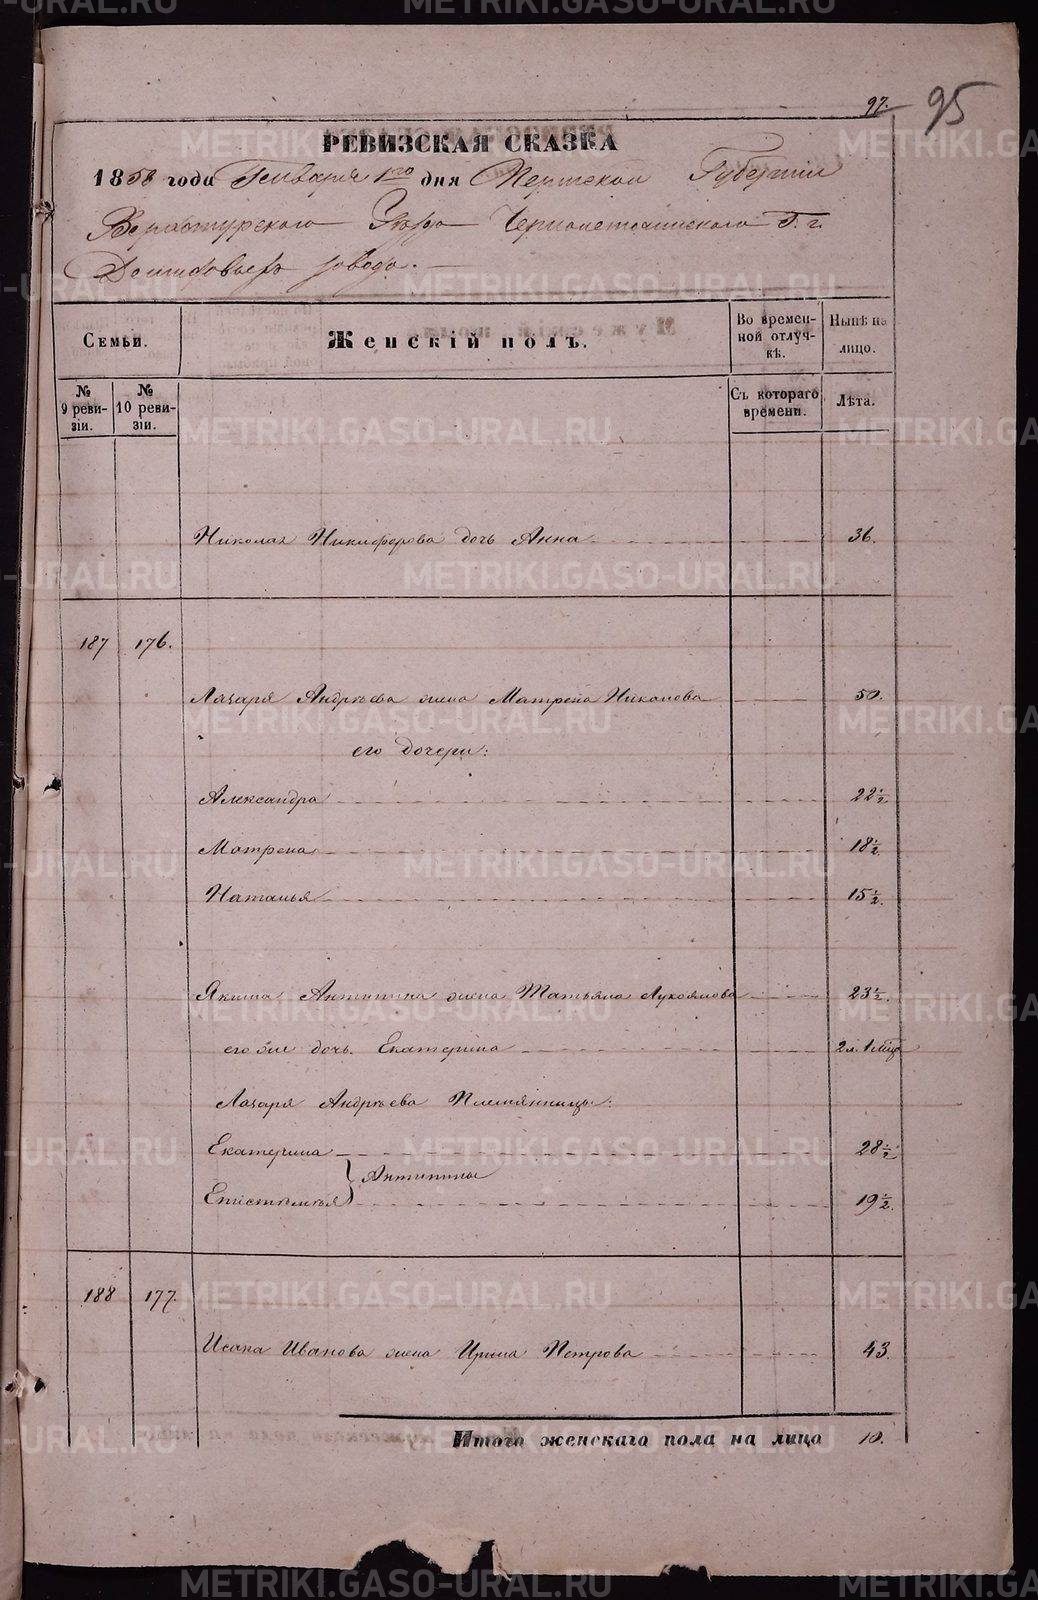 97. 95
РЕВИЗСКАЯ СКАЗКА
1858 года Генваря 1го дня Пермской Губернии
Верхотурского Уѣзда Черноисточинского Г. г.
Демидовыхъ завода.
Семьи.
Женскій полъ.
Во времен-
ной отлуч-
кѣ.
Нынѣ на
лицо.
№
9 реви-
зіи.
№
10 реви-
зіи.
Съ котораго
времени.
Лѣта.
Николая Никифорова дочь Анна 36.
187 176.
Лазаря Андрѣева жена Матрена 50.
его дочери:
Александра 22 1/2
Матрена 18 1/2.
Наталья 15 1/2.
Якима Антипина жена Татьяна Лукоянова 23 1/2.
его же дочь Екатерина 2 л. 1 мѣс.
Лазаря Андрѣева Племянницы:
Екатерина 28 1/2
} Антипины
Епистимѣя 19 1/2.
188 177.
Исака Иванова жена Ирина Петрова 43.
Итого женскаго пола на лицо 10.
METRIKI.GASO-URAL.RU